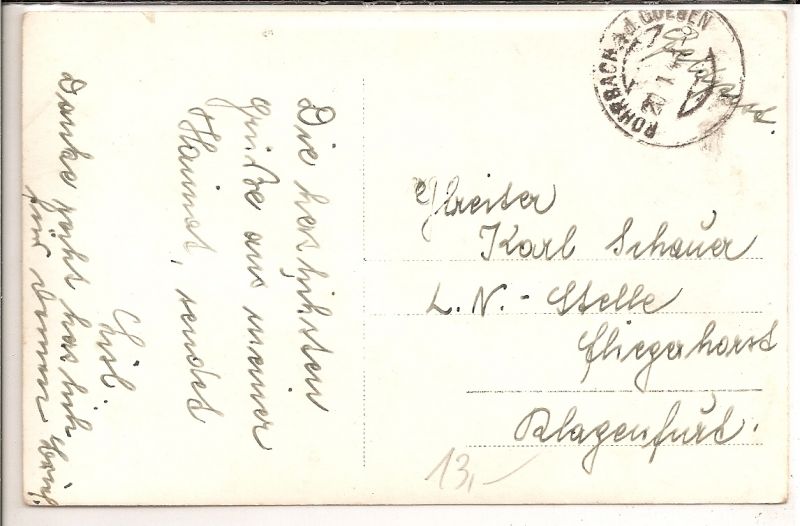 ROHRBACH A.D. GÖLSEN
Feldpost.
Die herzlichsten
Grüße aus meiner
Heimat, sendet
Lisl.
Danke recht herzlich
für deinen
Gfreiter
Karl Schauer
L.N.-Stelle
Fliegerhorst
Klagenfurt.
13,-